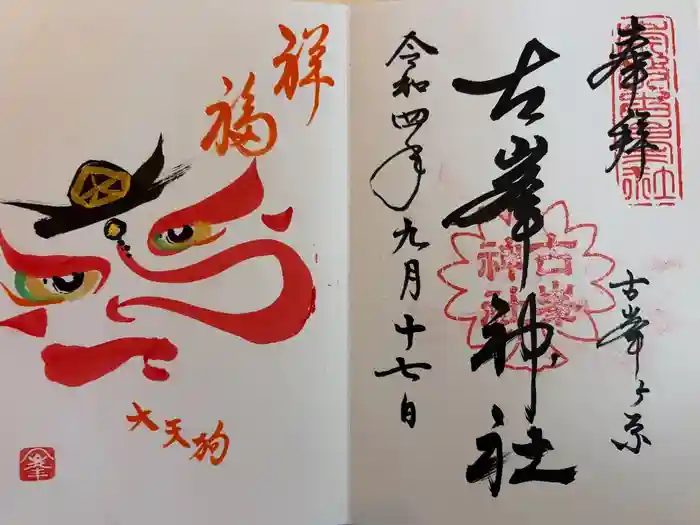 奉拝
古峯ヶ原
古峯神社
古峯神社
令和四年九月十七日
祥福
大天狗
峯